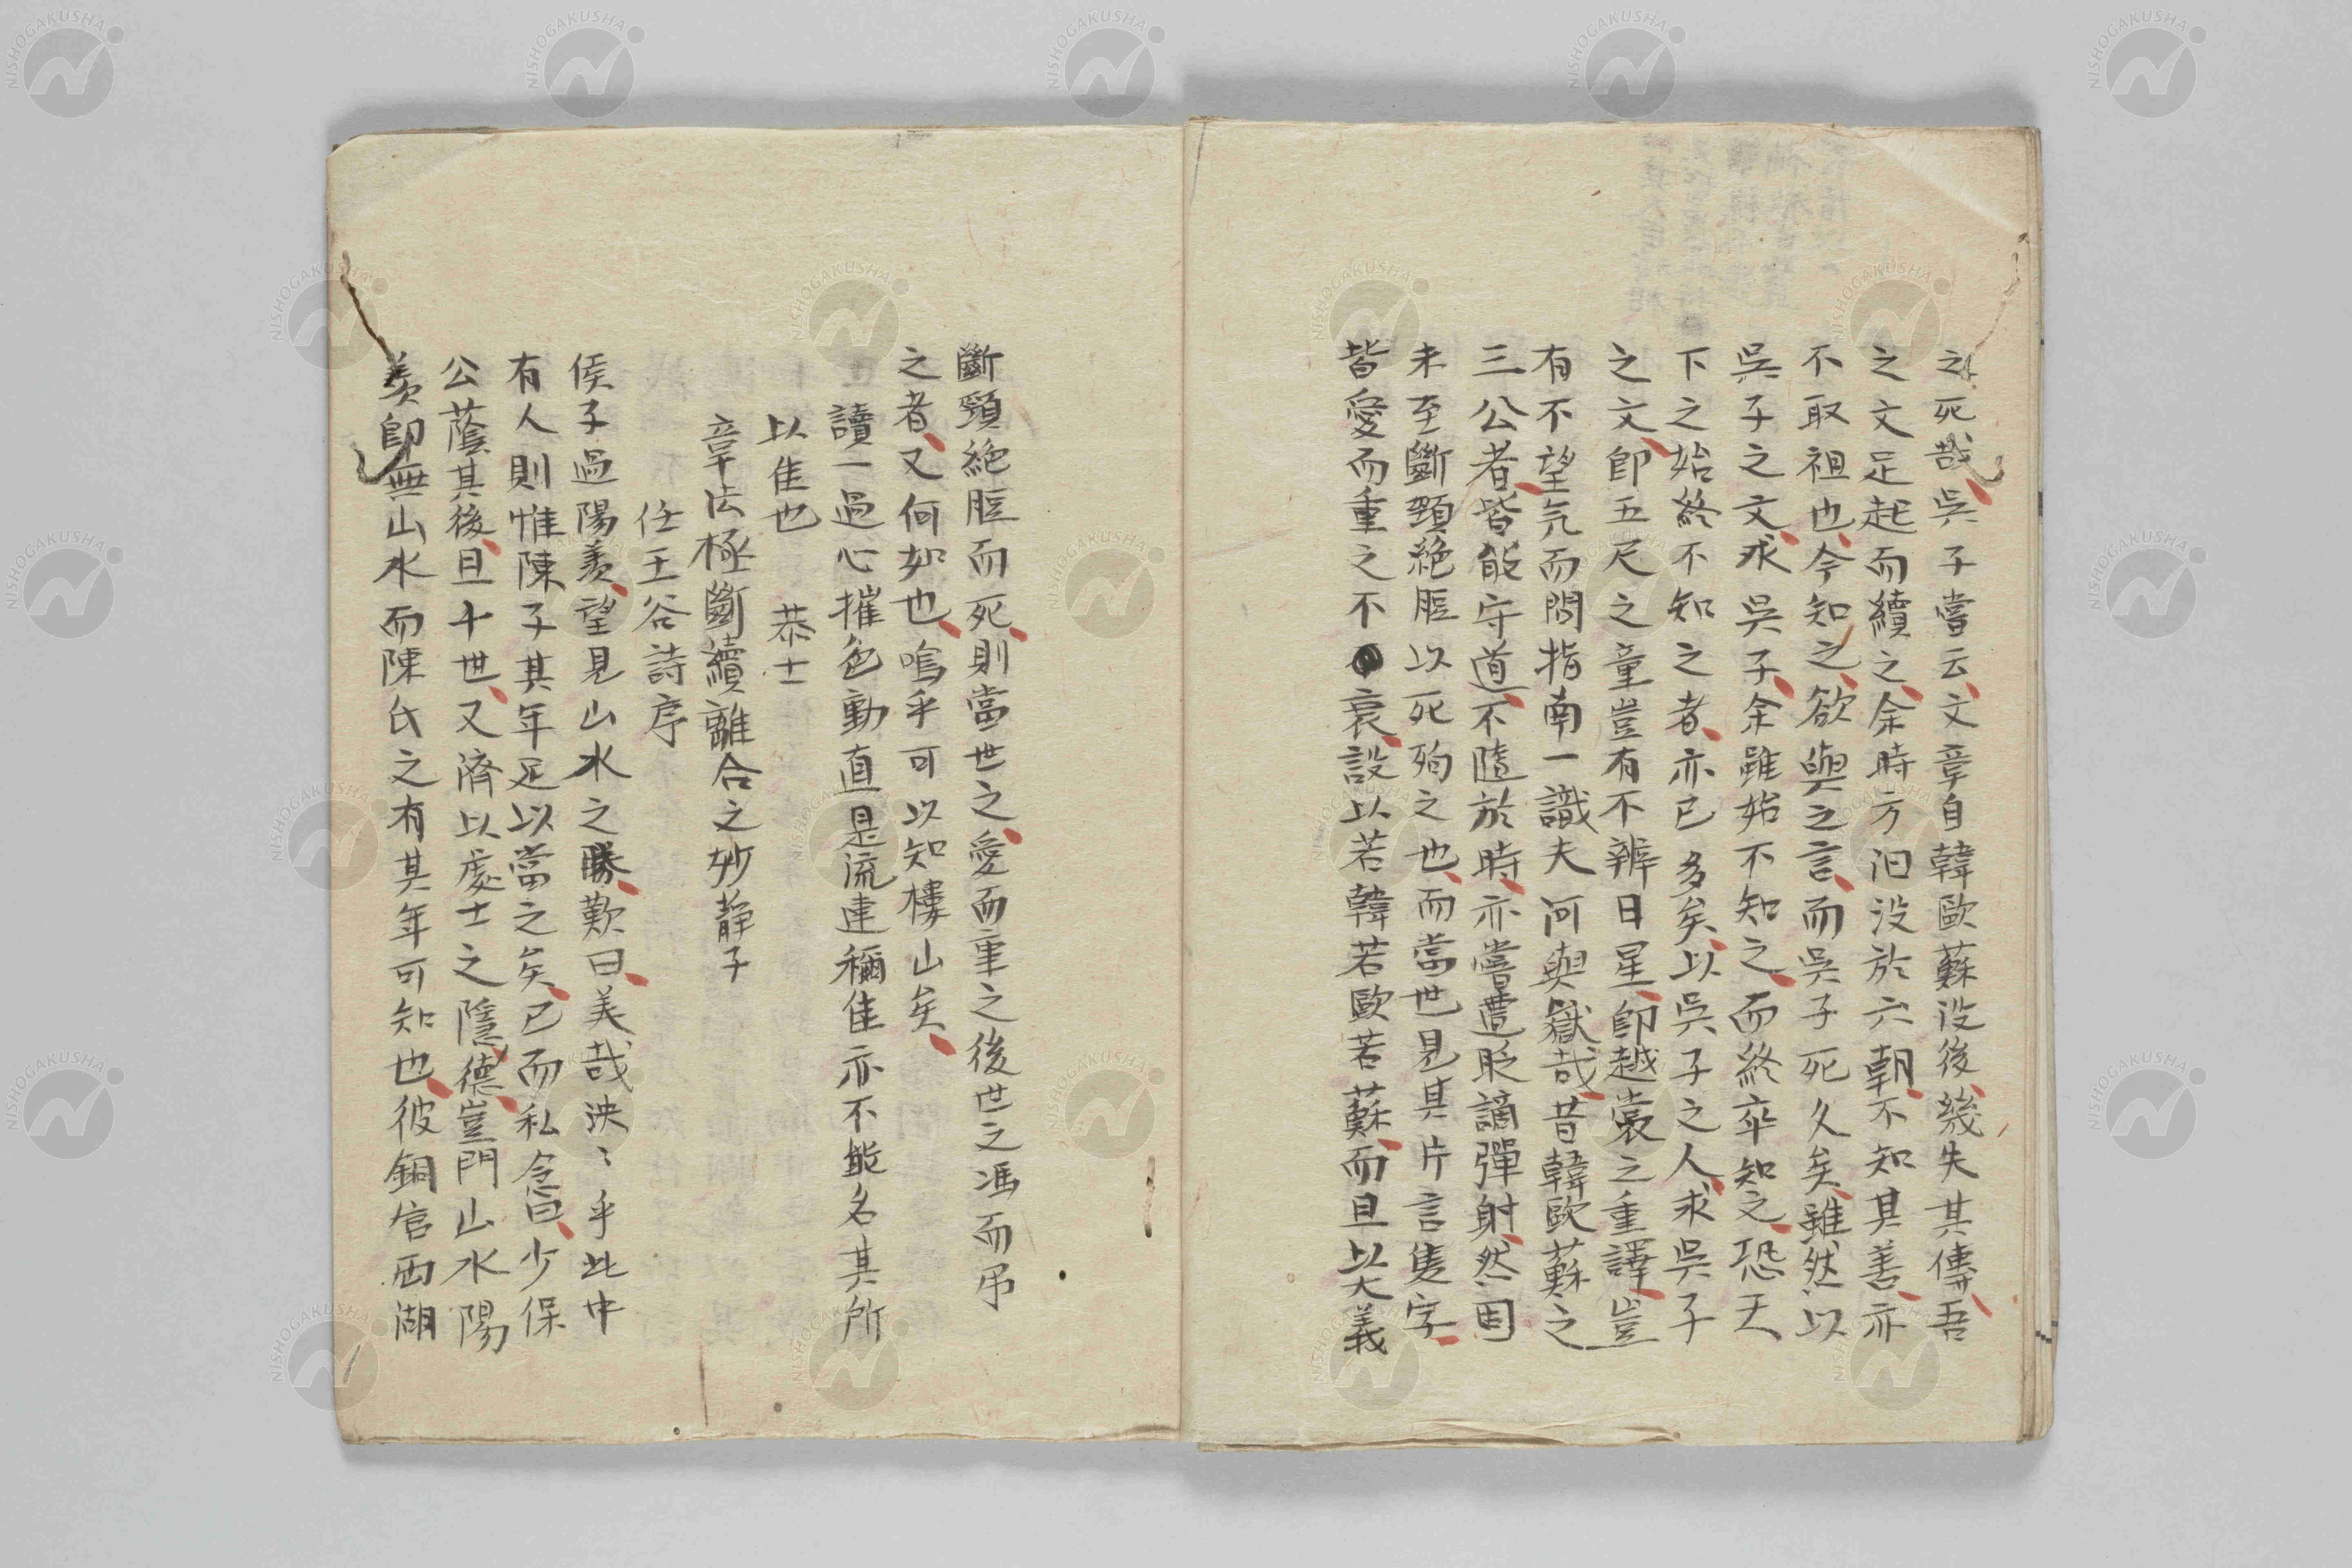 之死哉吳子嘗云文章自韓歐蘇没後幾失其傳吾
之文足起而續之余時方汩没於六朝不知其善亦
不取祖也今知之欲與之言而吳子死久矣雖然以
吳子之文求吳子余雖始不知之而終卒知之恐天
下之始終不知之者亦已多矣以吳子之人求吳子
之文卽五尺之童豈有不辨日星卽越裳之重譯豈
有不望氣而問指南一識夫河與嶽哉昔韓歐蘇之
三公者皆能守道不隨於時亦嘗遭貶謫彈射然固
未至斷頸絕脰以死殉之也而當世見其片言隻字
皆愛而重之不衰設以若韓若歐若蘇而且以大義
斷頸絕脰而死則當世之愛而重之後世之馮而吊
之者又何如也嗚乎可以知樓山矣
讀一過心摧色動直是流連稱佳亦不能名其所
以佳也 恭士
章法極斷續離合之妙静子
任王谷詩序
侯子過陽羨望見山水之勝歎曰美哉泱〻乎此中
有人則惟陳子其年足以當之矣已而私念曰少保
公蔭其後且十世又濟以處士之隱德豈門山水陽
羨卽無山水而陳氏之有其年可知也彼銅官西湖
NISHOGAKUSHA